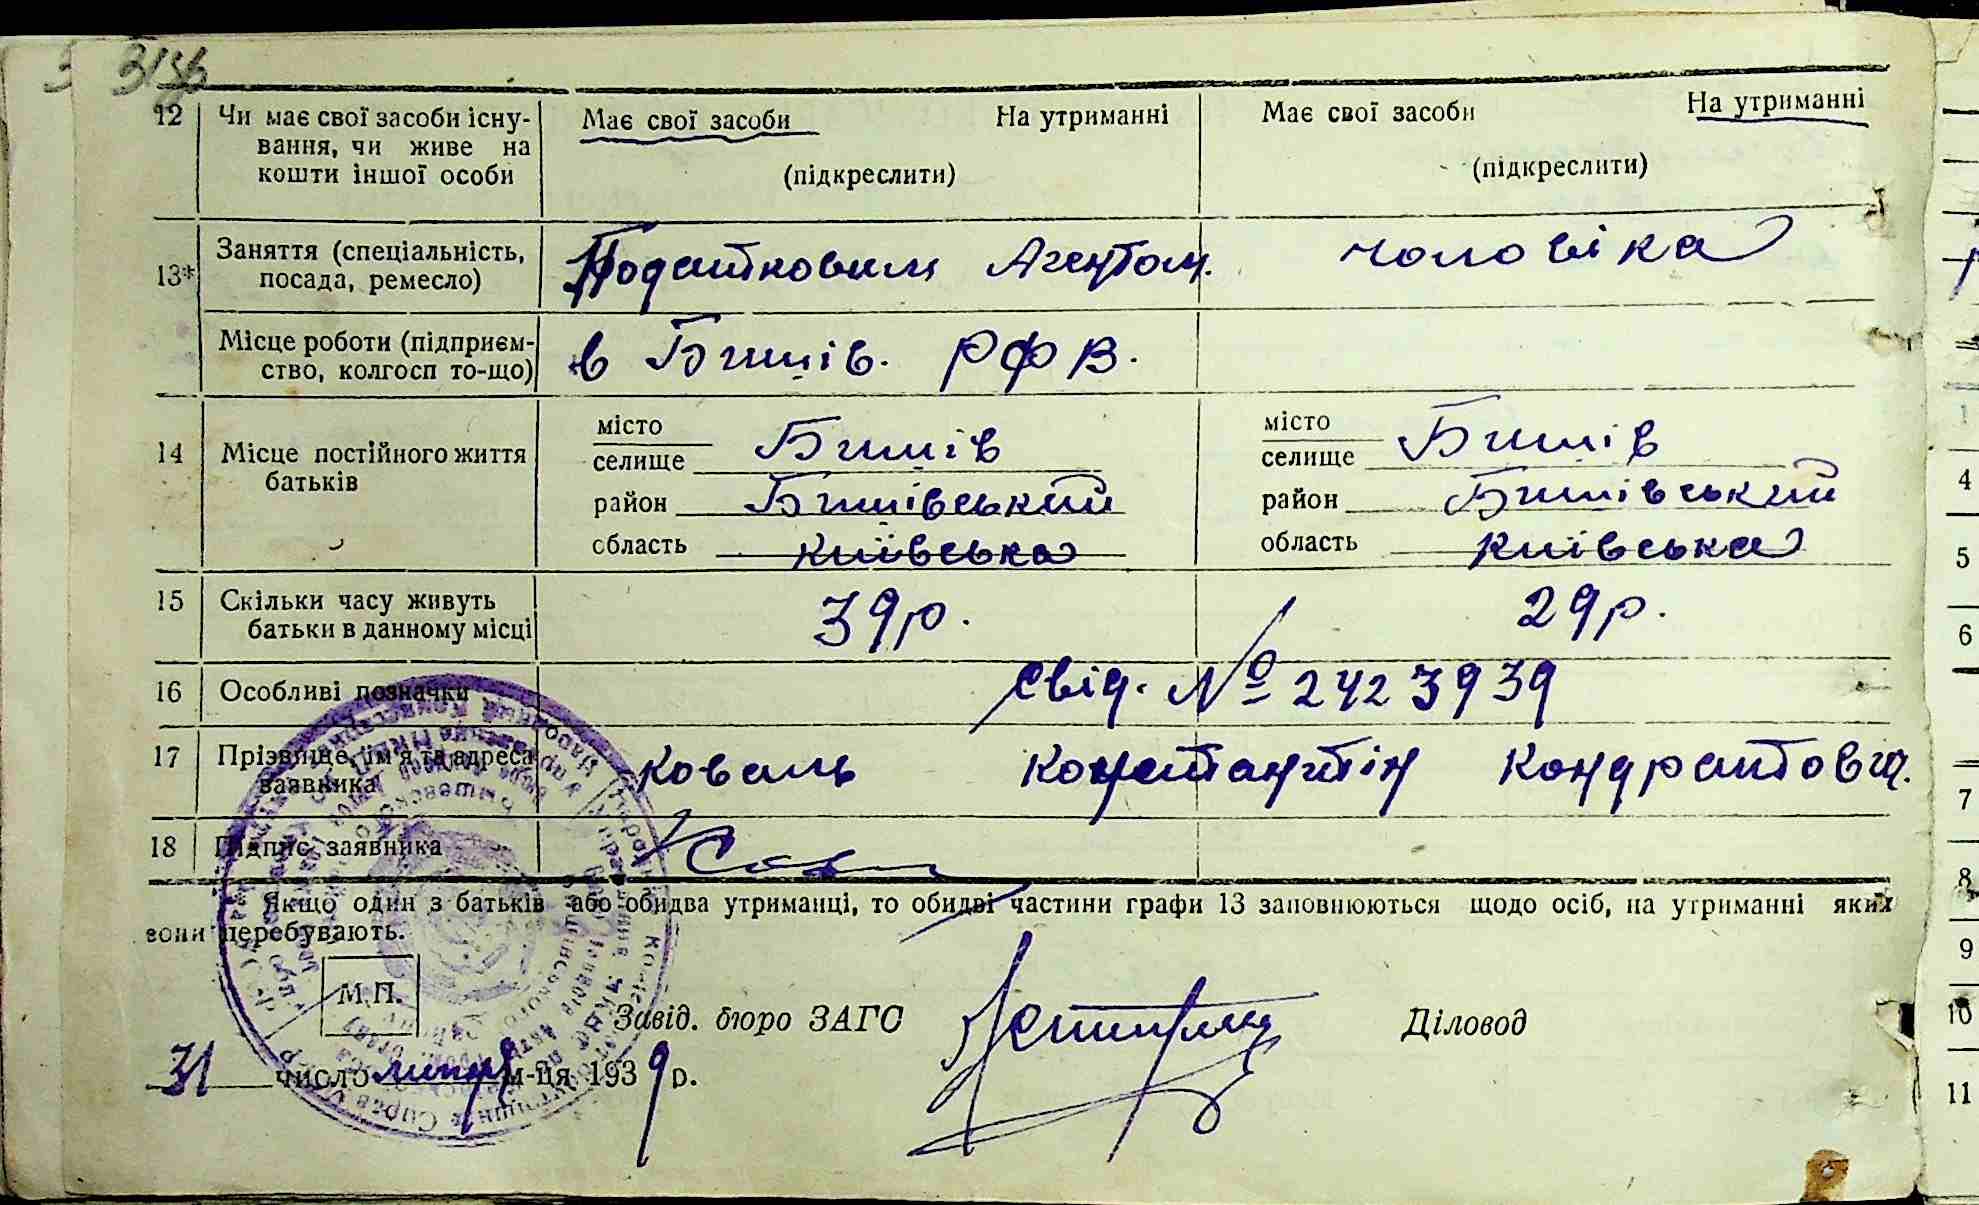 12 Чи має свої засоби існу- Має свої засоби На утриманні Має свої засоби На утриманні
вання, чи живе на
кошти іншої особи (підкреслити) (підкреслити)
13* Заняття (спеціальність, Податковим Агентом. чоловіка
посада, ремесло)
Місце роботи (підприєм- в Бишів. РФВ.
ство, колгосп то-що)
14 Місце постійного життя місто Бишів місто Бишів
батьків селище селище
район Бишівський район Бишівський
область київська область київська
15 Скільки часу живуть 39р. 29р.
батьки в данному місці
16 Особливі позначки Свід. № 2423939
17 Прізвище, ім'я та адреса Коваль Констянтін Кондратович.
заявника
18 Підпис заявника
Якщо один з батьків або обидва утриманці, то обидві частини графи 13 заповнюються щодо осіб, на утриманні яких
вони перебувають.
М.П.
Завід. бюро ЗАГС Діловод
31 число липня м-ця 1939 р.
4
5
6
7
8
9
10
11